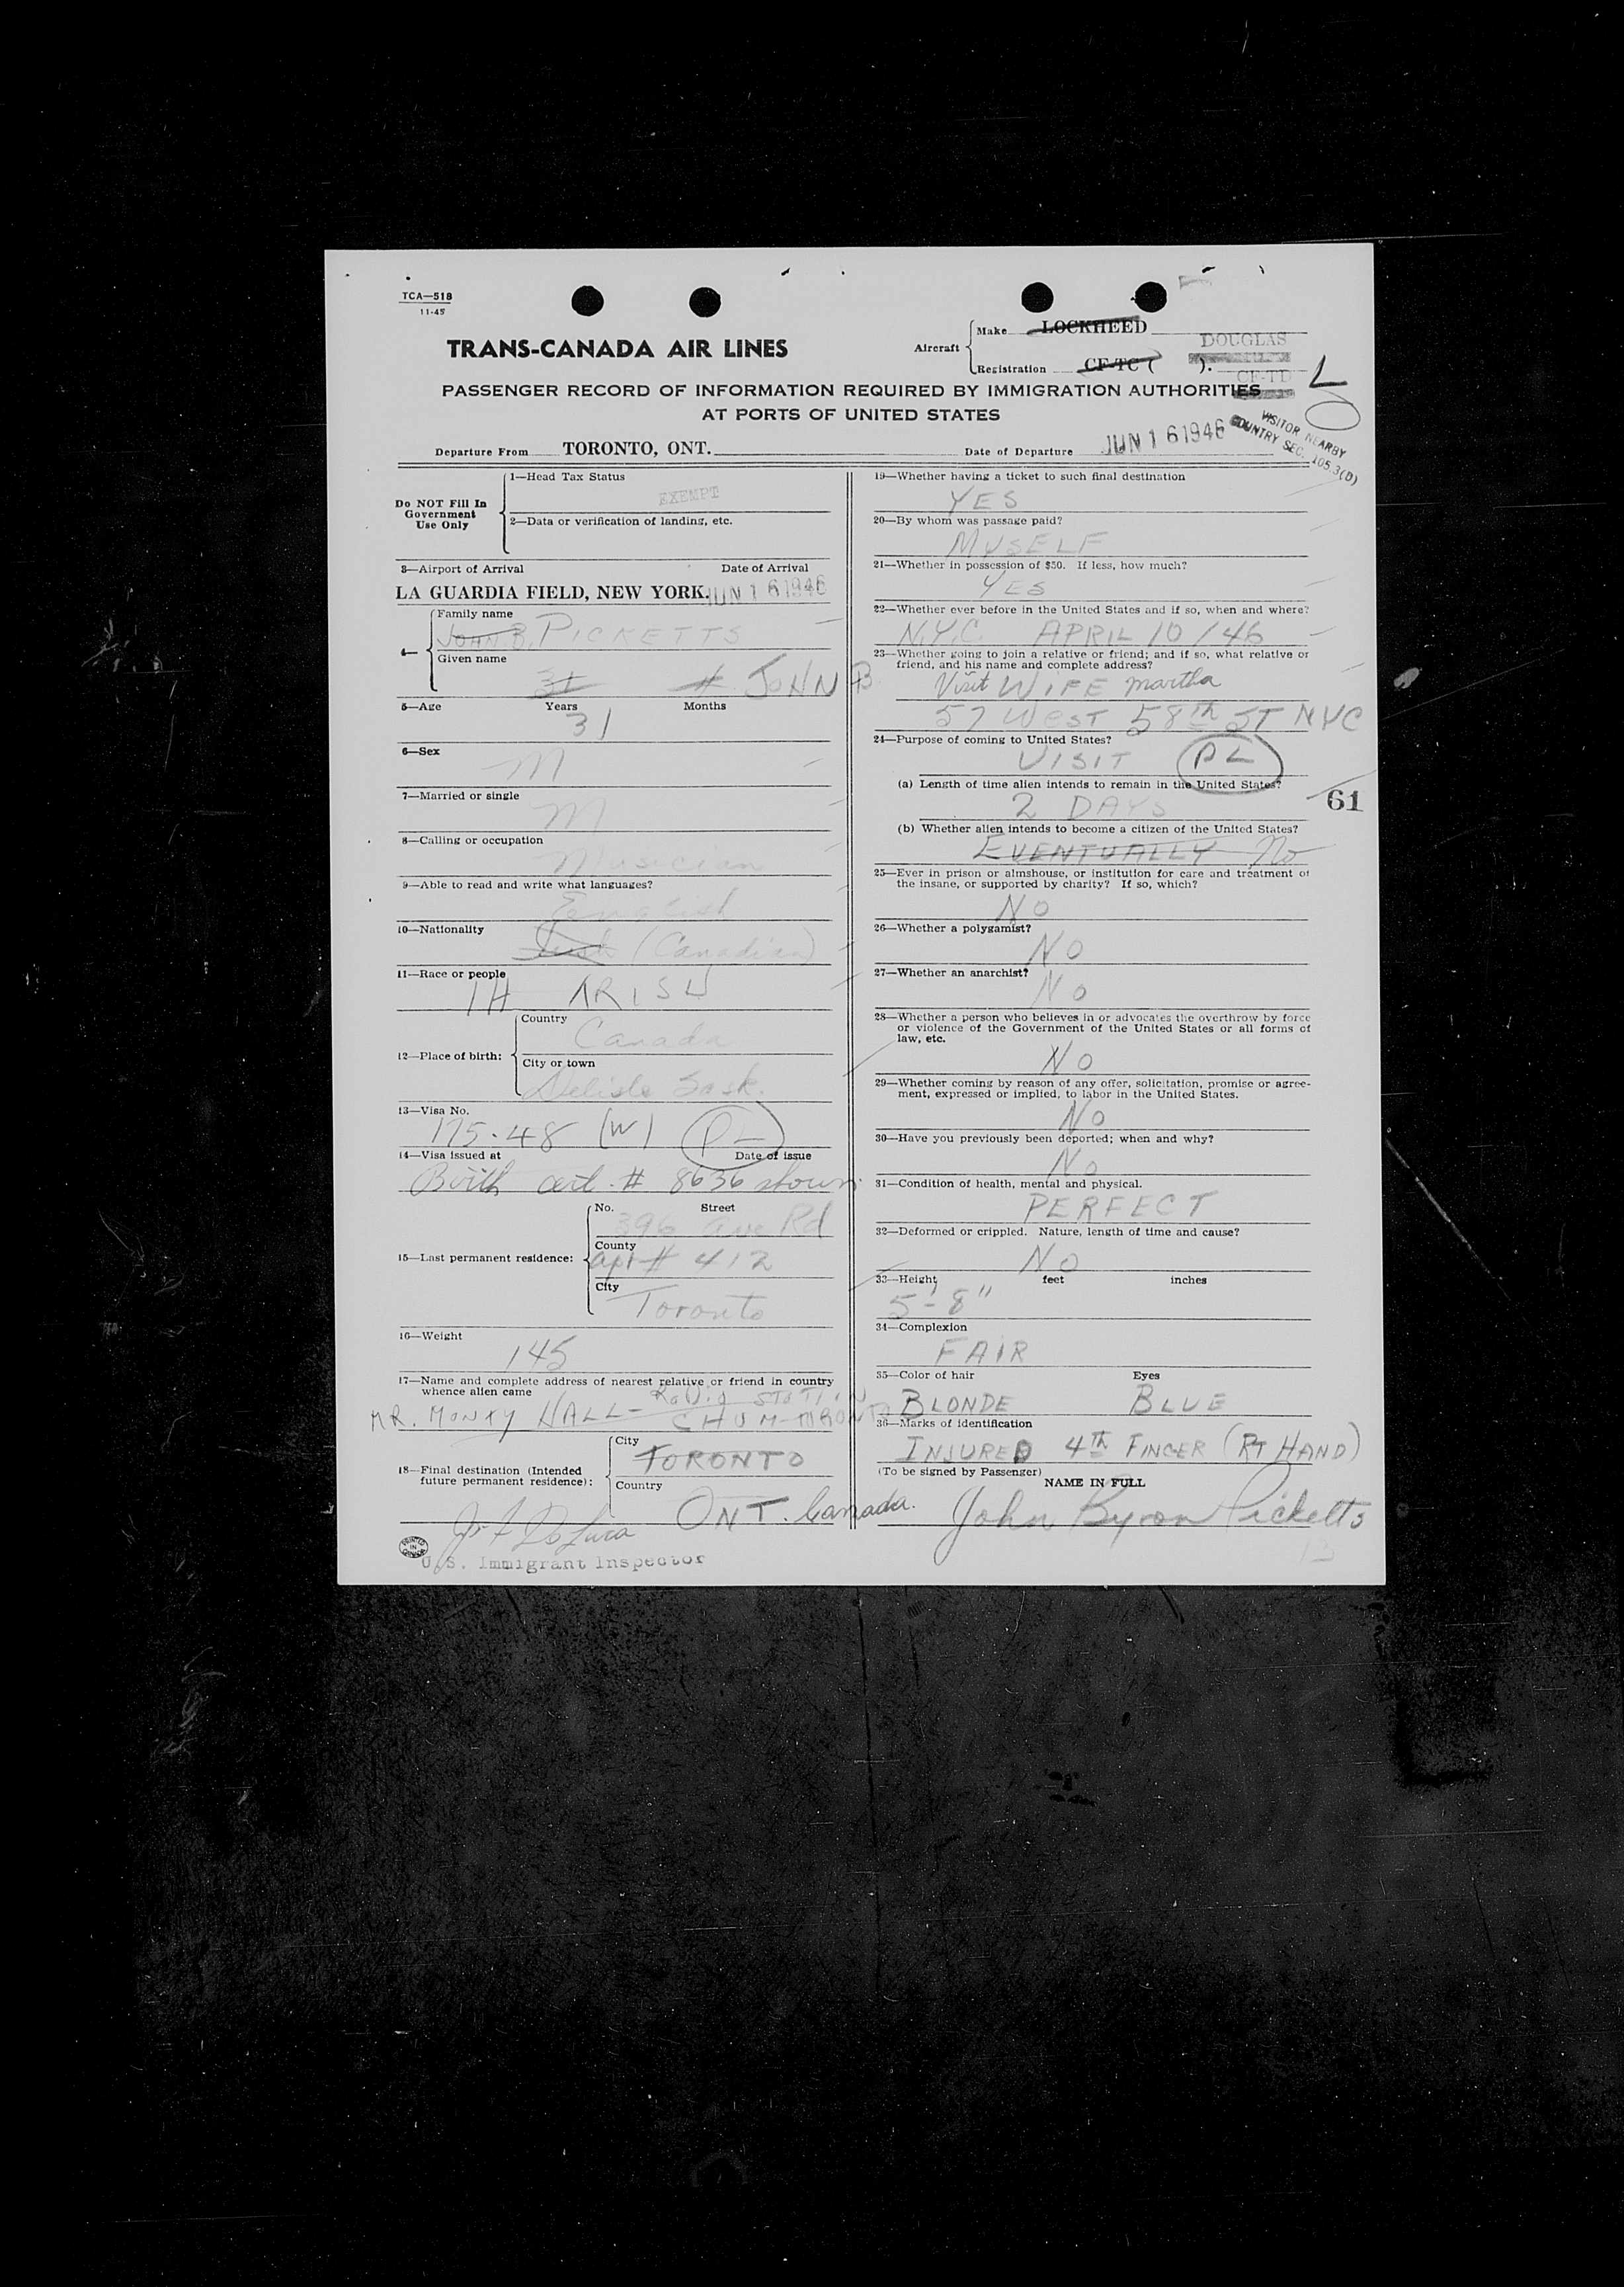 TCA—518
11-45
TRANS-CANADA AIR LINES
Aircraft
Make LOCKHEED
DOUGLAS
Registration CF-TC ( ).
CF-TD
PASSENGER RECORD OF INFORMATION REQUIRED BY IMMIGRATION AUTHORITIES
AT PORTS OF UNITED STATES
VISITOR NEARBY
COUNTRY SEC. 105.3(D)
Departure From TORONTO, ONT.
Date of Departure JUN 16 1946
Do NOT Fill In
Government
Use Only
1—Head Tax Status
EXEMPT
2—Data or verification of landing, etc.
3—Airport of Arrival Date of Arrival
LA GUARDIA FIELD, NEW YORK. JUN 16 1946
4—
Family name
JOHN B. PICKETTS
Given name
31 JOHN B.
5—Age Years Months
31
6—Sex
M
7—Married or single
M
8—Calling or occupation
Musician
9—Able to read and write what languages?
English
10—Nationality
(Canadian)
11—Race or people
IRISH
12—Place of birth:
Country
Canada
City or town
Delisle Sask.
13—Visa No.
175.48 (W)
14—Visa issued at Date of issue
Birth cert. # 8636 shown
15—Last permanent residence:
No. Street
396 Ave Rd
County
apt # 412
City
Toronto
16—Weight
145
17—Name and complete address of nearest relative or friend in country
whence alien came
MR. MONTY HALL - RADIO STATION
CHUM - TORONTO
18—Final destination (Intended
future permanent residence):
City
TORONTO
Country
ONT. Canada.
U.S. Immigrant Inspector
PRINTED IN CANADA
19—Whether having a ticket to such final destination
YES
20—By whom was passage paid?
MYSELF
21—Whether in possession of $50. If less, how much?
YES
22—Whether ever before in the United States and if so, when and where?
N.Y.C. APRIL 10/46
23—Whether going to join a relative or friend; and if so, what relative or
friend, and his name and complete address?
Visit WIFE Martha
57 WEST 58th ST NYC
24—Purpose of coming to United States?
VISIT PL
(a) Length of time alien intends to remain in the United States?
2 DAYS
61
(b) Whether alien intends to become a citizen of the United States?
EVENTUALLY No
25—Ever in prison or almshouse, or institution for care and treatment of
the insane, or supported by charity? If so, which?
NO
26—Whether a polygamist?
NO
27—Whether an anarchist?
No
28—Whether a person who believes in or advocates the overthrow by force
or violence of the Government of the United States or all forms of
law, etc.
NO
29—Whether coming by reason of any offer, solicitation, promise or agree-
ment, expressed or implied, to labor in the United States.
No
30—Have you previously been deported; when and why?
No
31—Condition of health, mental and physical.
PERFECT
32—Deformed or crippled. Nature, length of time and cause?
NO
33—Height feet inches
5'-8"
34—Complexion
FAIR
35—Color of hair Eyes
BLONDE BLUE
36—Marks of identification
INJURED 4TH FINGER (RT HAND)
(To be signed by Passenger)
NAME IN FULL
John Byron Picketts
13